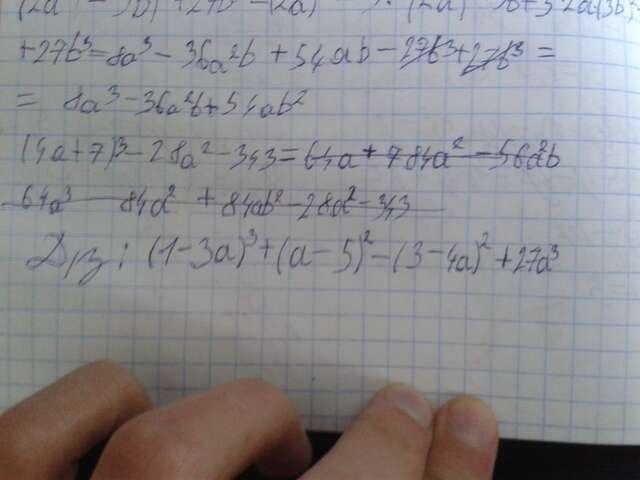 +27b³=8a³-36a²b+54ab-27b³+27b³=
= 8a³-36a²b+54ab²
(4a+7)³-28a²-343=64a+784a²-56a²b
64a³ 84a² +84ab²-28a²-343
Д/з: (1-3a)³+(a-5)²-(3-4a)²+27a³